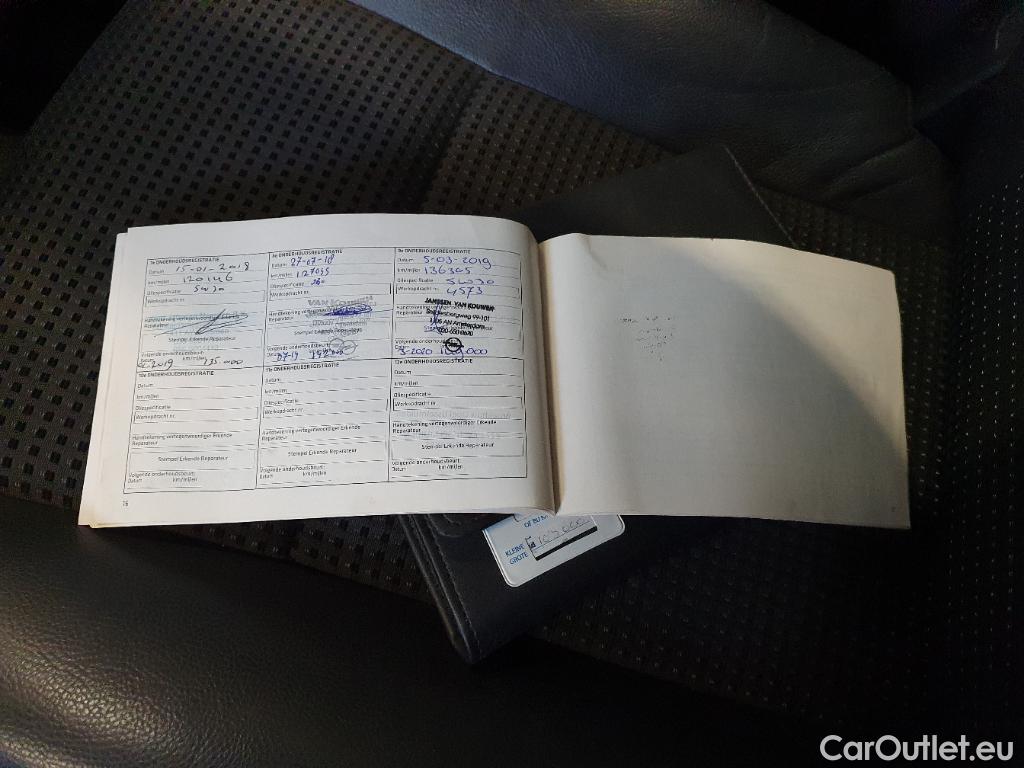 7e ONDERHOUDSREGISTRATIE
Datum 15-01-2018
km/mijlen 120146
Oliespecificatie 5w30
Werkopdracht nr.
Handtekening vertegenwoordiger Erkende
Reparateur
Stempel Erkende Reparateur
Volgende onderhoudsbeurt:
Datum 2019 km/mijlen 135.000
8e ONDERHOUDSREGISTRATIE
Datum 27-07-18
km/mijlen 127095
Oliespecificatie
Werkopdracht nr.
VAN KOUWEN
Handtekening
Reparateur
Stempel Erkende Reparateur
Volgende onderhoudsbeurt:
Datum 07-19
9e ONDERHOUDSREGISTRATIE
Datum 5-03-2019
km/mijlen 136365
Oliespecificatie 5W30
Werkopdracht nr. 4573
JANSSEN VAN KOUWEN
Handtekening
Reparateur
99-101
AN Amsterdam
Volgende onderhoudsbeurt:
3-2020
10e ONDERHOUDSREGISTRATIE
Datum
km/mijlen
Oliespecificatie
Werkopdracht nr.
Handtekening vertegenwoordiger Erkende
Reparateur
Stempel Erkende Reparateur
Volgende onderhoudsbeurt:
Datum km/mijlen
11e ONDERHOUDSREGISTRATIE
Datum
km/mijlen
Oliespecificatie
Werkopdracht nr.
Handtekening vertegenwoordiger Erkende
Reparateur
Stempel Erkende Reparateur
Volgende onderhoudsbeurt:
Datum km/mijlen
12e ONDERHOUDSREGISTRATIE
Datum
km/mijlen
Oliespecificatie
Werkopdracht nr.
Handtekening vertegenwoordiger Erkende
Reparateur
Stempel Erkende Reparateur
Volgende onderhoudsbeurt:
Datum km/mijlen
16
OF BIJ
KLEINE
GROTE
CarOutlet.eu